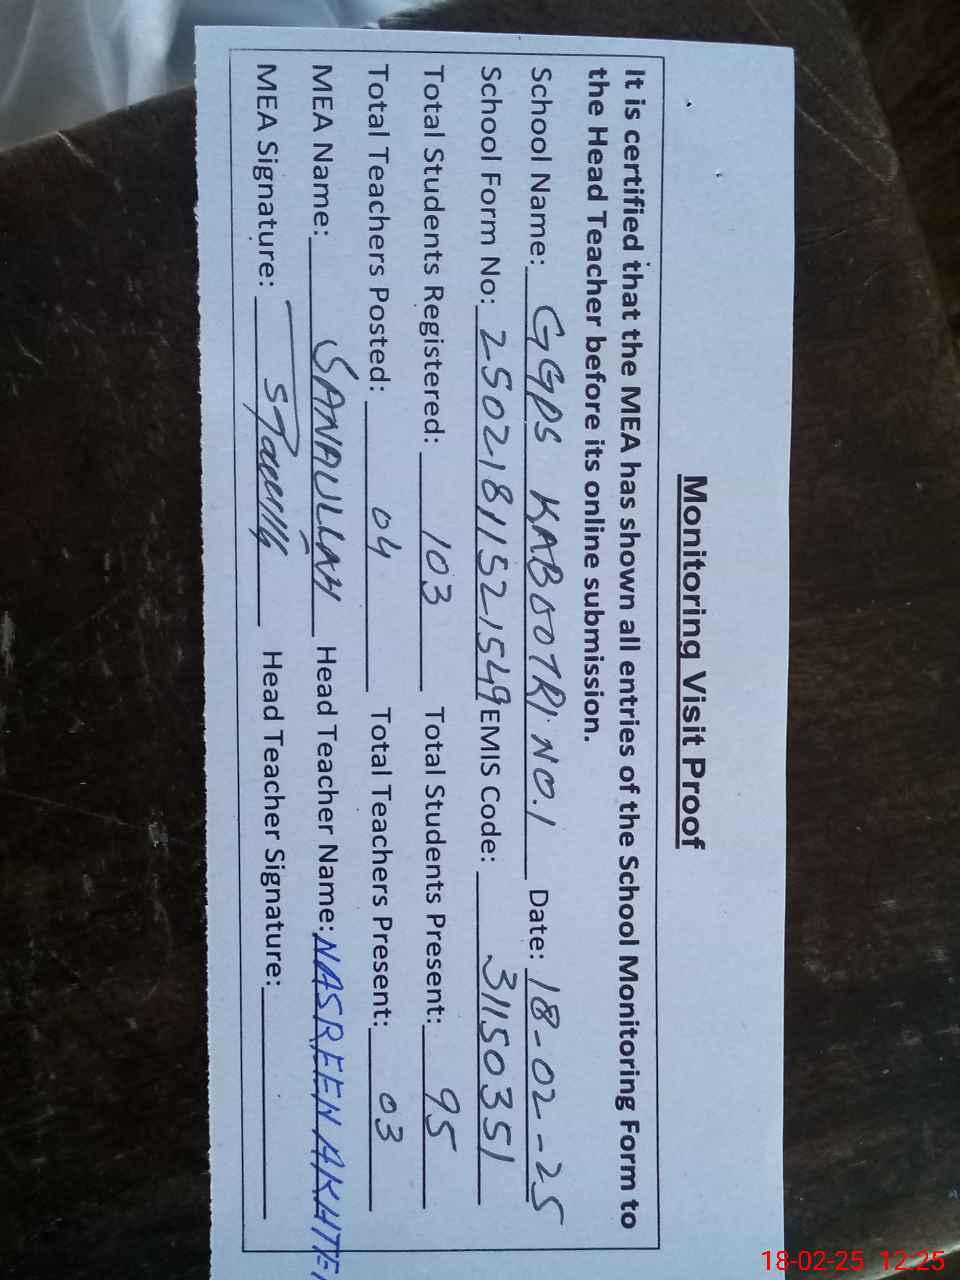 Monitoring Visit Proof
It is certified that the MEA has shown all entries of the School Monitoring Form to
the Head Teacher before its online submission.
School Name: GGPS KABOOTRI NO.1 Date: 18-02-25
School Form No: 25021811521549 EMIS Code: 31150351
Total Students Registered: 103 Total Students Present: 95
Total Teachers Posted: 04 Total Teachers Present: 03
MEA Name: SANAULLAH Head Teacher Name: NASREEN AKHTER
MEA Signature: Head Teacher Signature:
18-02-25 12:25